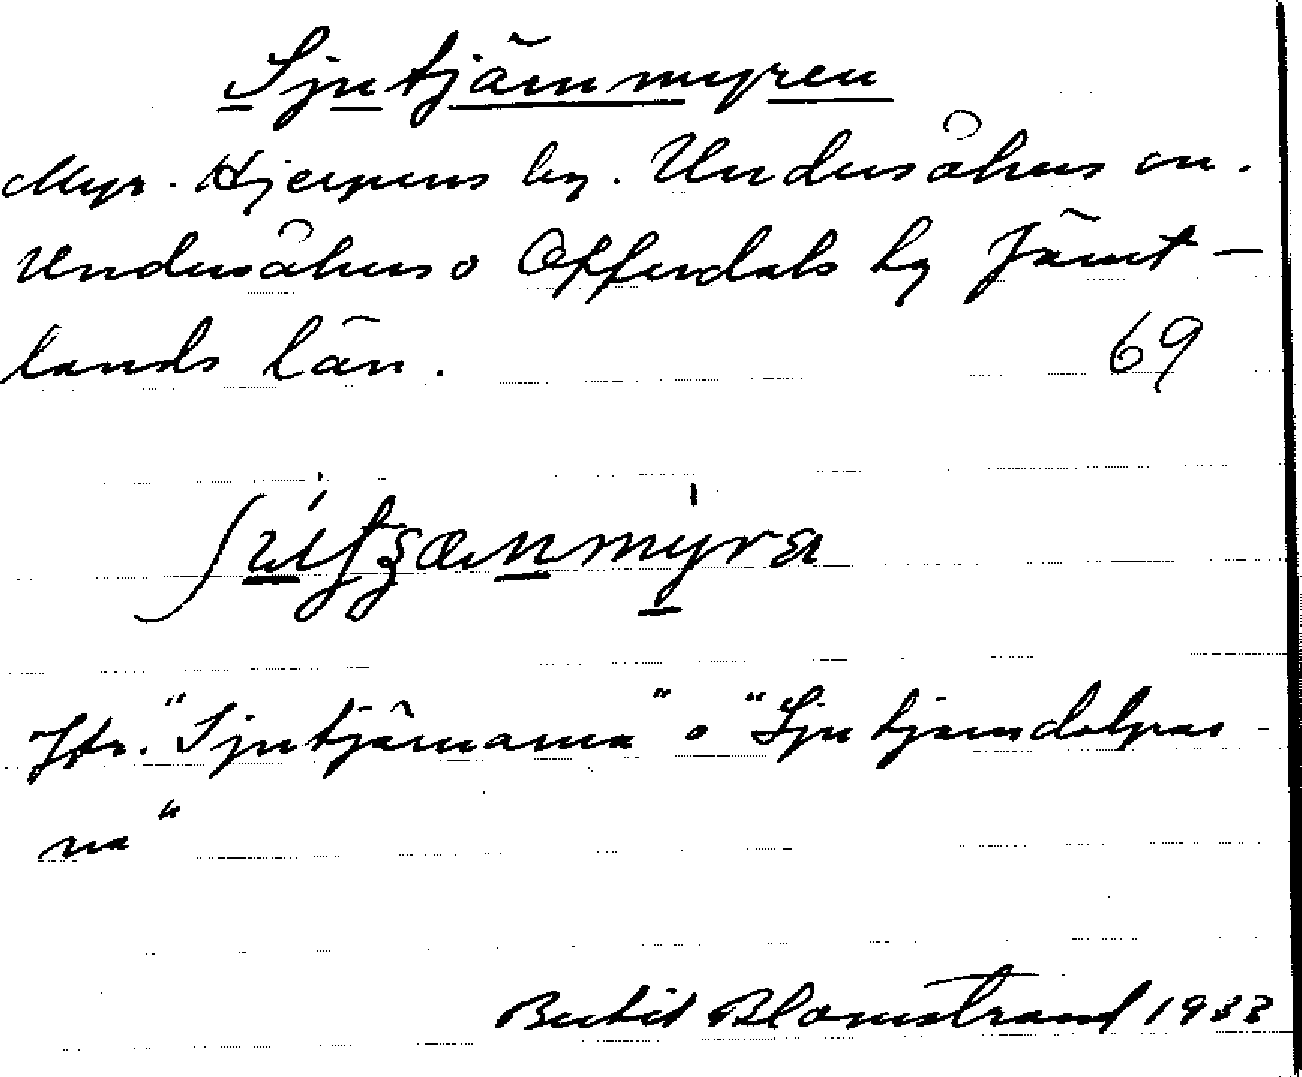 Sjutjärnmyren
Myr. Hjerpens by. Undersåkers sn.
Undersåkers o Offerdals hg Jämt-
lands län. 69
Jfr. "Sjutjärnarna" o "Sjutjärndalgar-
na"
Bertil Blomstrand 1933